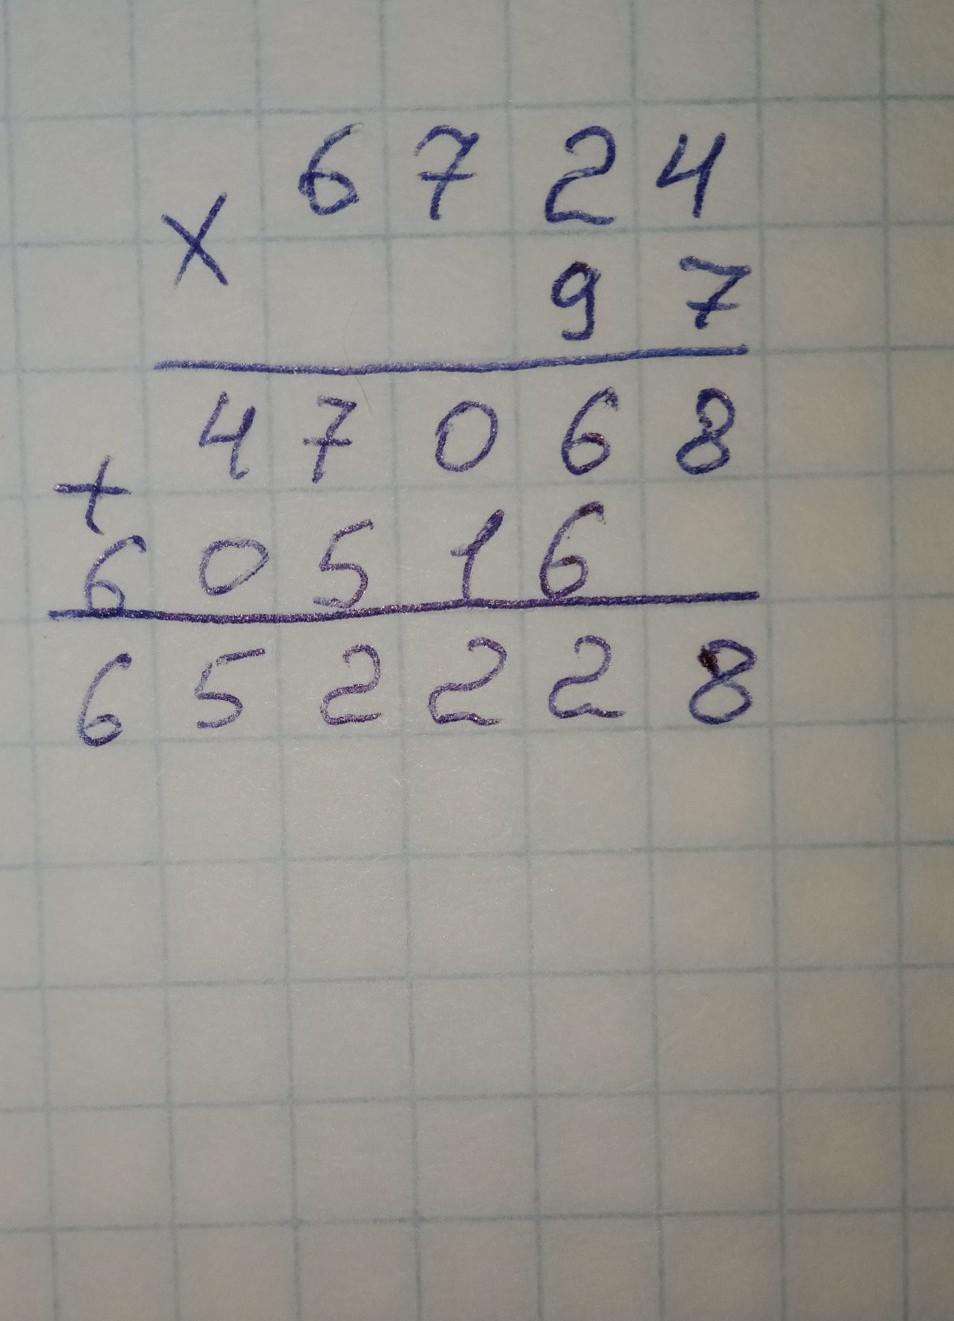 6724
×
97
47068
+
60516
652228